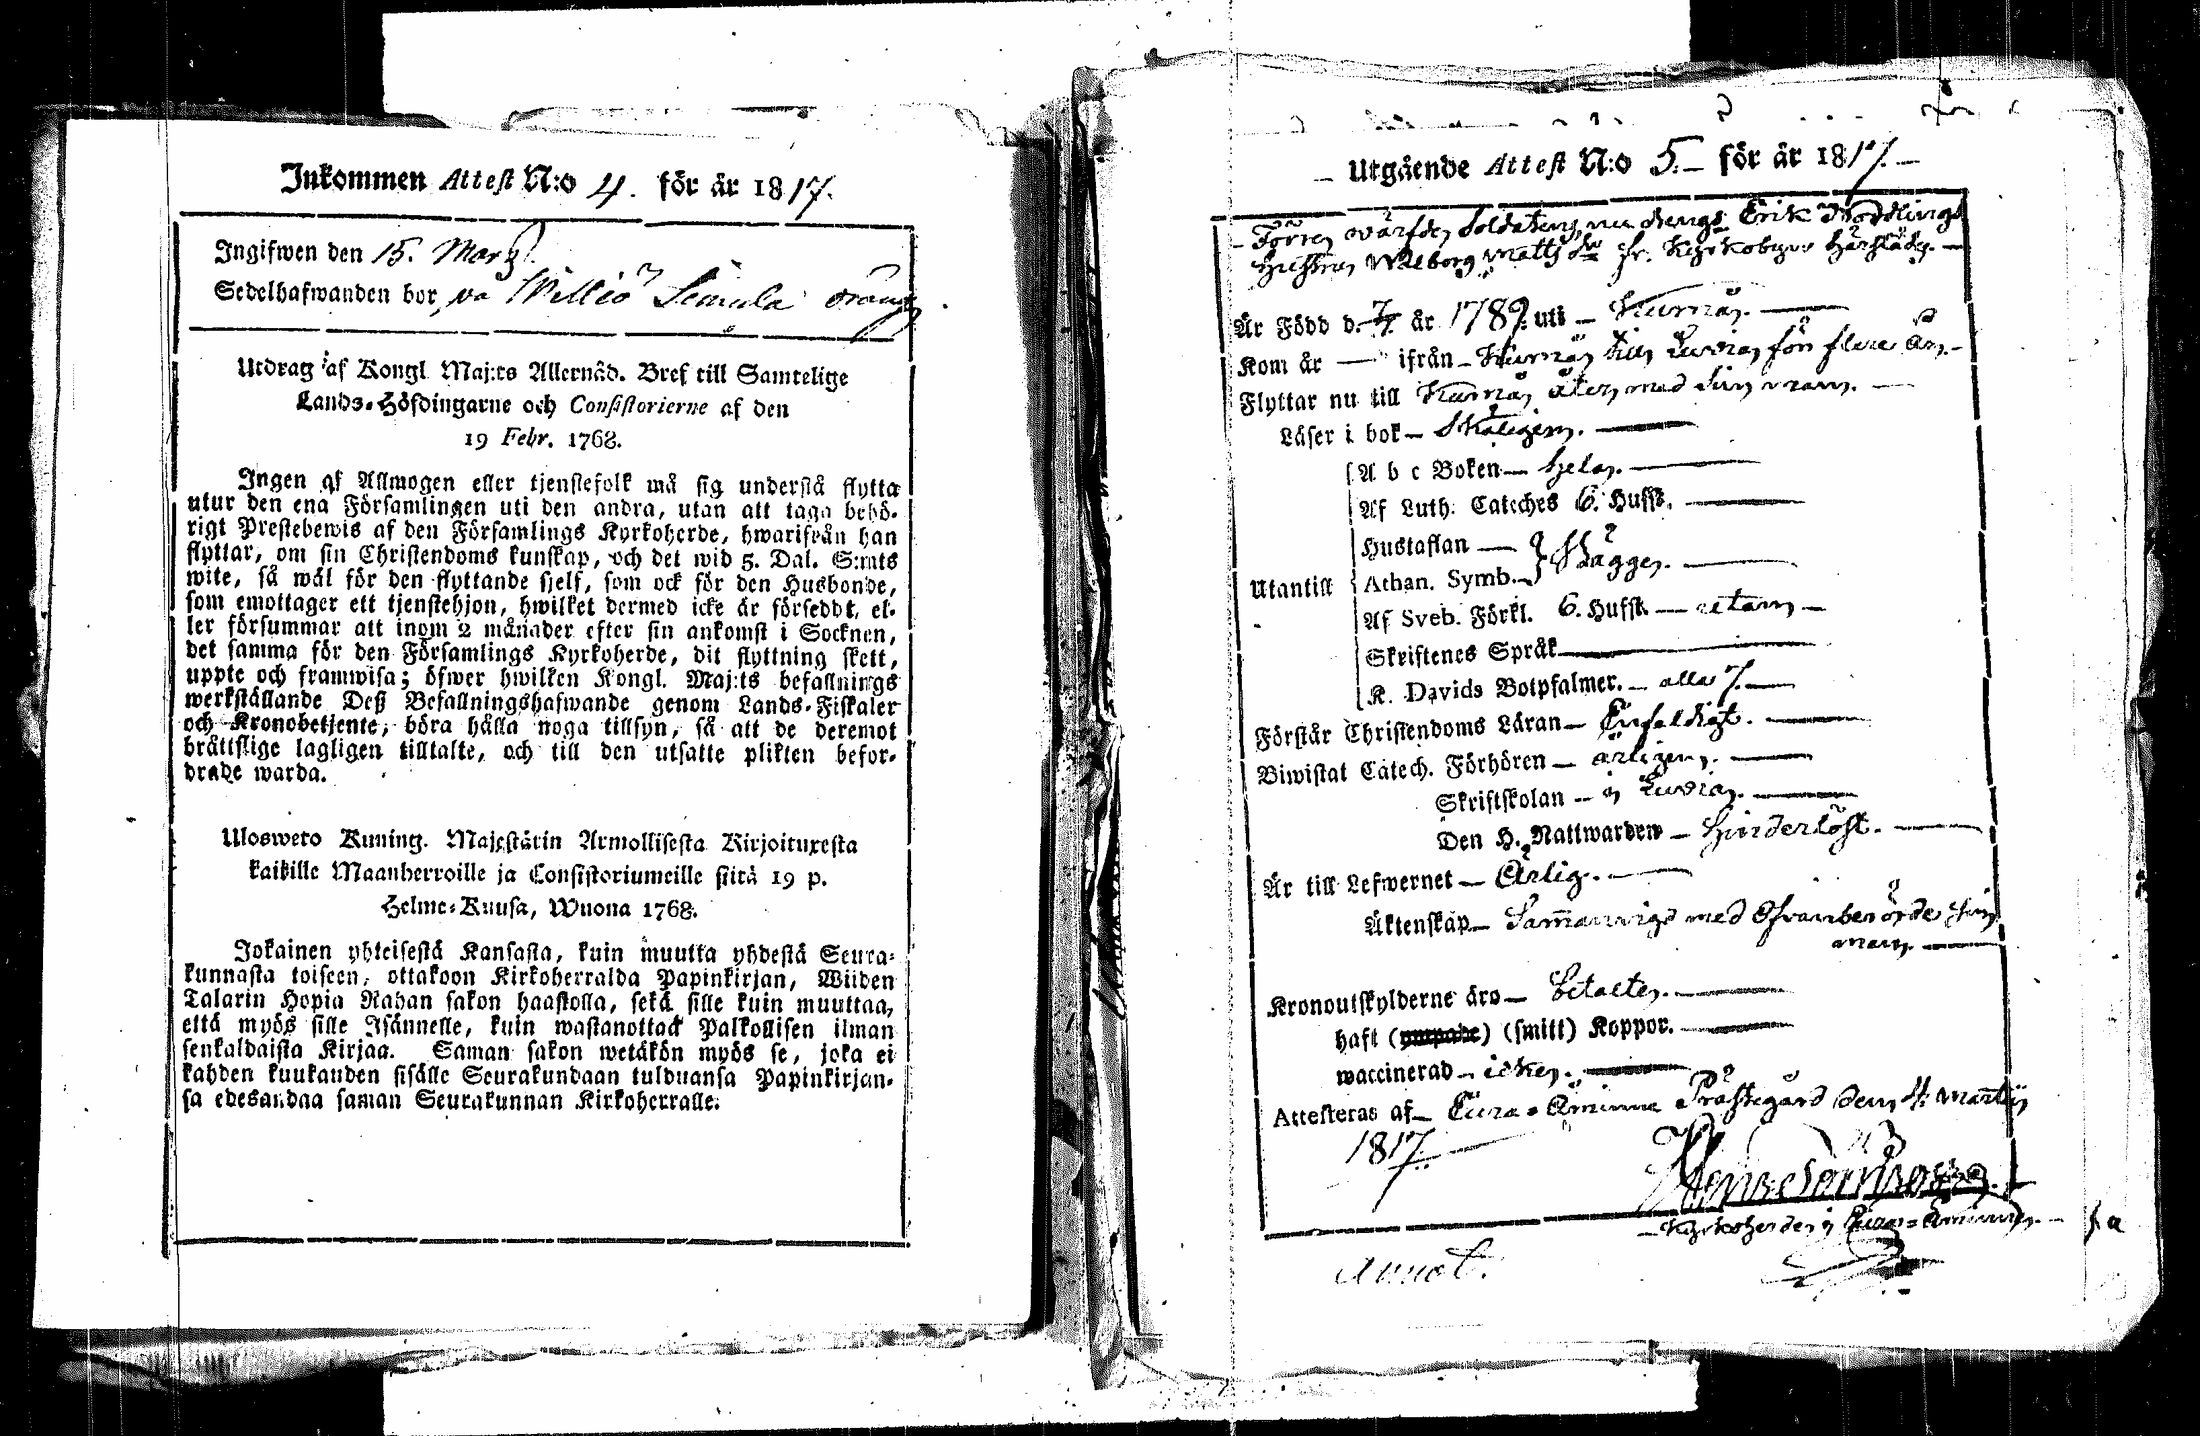 Inkommen Attest N:o 4. för år 1817.
Ingifwen den 15. Mars
Sedelhafwanden bor på Willio Simula
Utdrag af Kongl. Maj:ts Allernåd. Bref till Samtelige
Lands-Höfdingarne och Consistorierne af den
19 Febr. 1768.
Ingen af Allmogen eller tjenstefolk må sig understå flytta
utur den ena Församlingen uti den andra, utan att taga behö-
rigt Prestebewis af den Församlings Kyrkoherde, hwarifrån han
flyttar, om sin Christendoms kunskap, och det wid 5. Dal. S:mts
wite, så wäl för den flyttande sjelf, som ock för den Husbonde,
som emottager ett tjenstehjon, hwilket dermed icke är förseddt, el-
ler försummar att inom 2 månader efter sin ankomst i Socknen,
det samma för den Församlings Kyrkoherde, dit flyttning skett,
uppte och framwisa; öfwer hwilken Kongl. Maj:ts befallnings
werkställande Deß Befallningshafwande genom Lands-Fiskaler
och Kronobetjente, böra hålla noga tillsyn, så att de deremot
bråttslige lagligen tilltalte, och till den utsatte plikten befor-
drade warda.
Uloswero Kuning. Majestätin Armollisesta Kirjoituxesta
kaikille Maanherroille ja Consistoriumeille siitä 19 p.
Helme-Kuusa, Wuona 1768.
Jokainen yhteisestä Kansasta, kuin muutta yhdestä Seura-
kunnasta toiseen, ottakoon Kirkoherralda Papinkirjan, Wiiden
Talarin Hopia Rahan sakon haastolla, sekä sille kuin muuttaa,
että myös sille Isännelle, kuin wastanottaa Palkollisen ilman
senkaldaista Kirjaa. Saman sakon wetäkön myös se, joka ei
kahden kuukauden sisälle Seurakundaan tulduansa Papinkirjan-
sa edesandaa saman Seurakunnan Kirkoherralle.
Utgående Attest N:o 5. för år 1817.
Förre wärfde Soldatens, nu drengs Erik
Hustru Walborg Matts dr fr. Kyrkobyn härstädes.
Är Född d. år 1789. uti Kumo,
Kom år — ifrån Kumo, till Eura, för flere år.
Flyttar nu till Kumo, åter med sin man.
Läser i bok Skäligen.
Utantill
A b c Boken Hela.
Af Luth. Cateches 6. Hufst.
Hustaflan
Athan. Symb. } Bägge.
Af Sveb. Förkl. 6. Hufst. utan
Skriftenes Språk
K. Davids Botpsalmer. alla 7.
Förstår Christendoms Läran Enfaldigt.
Biwistat Catech. Förhören årligen.
Skriftskolan i Eura.
Den H. Nattwarden Hinderlöst.
Är till Lefwernet Ärlig.
Äktenskap Sammanvigd med Ofvanberörde sin
man.
Kronoutskylderne äro betalte.
haft (ympade) (smitt) Koppor.
waccinerad icke.
Attesteras af Eura-Åminne Prästegård den 4. Martii
1817.
Kyrkoherde i Eura-Åminne.
Annot.